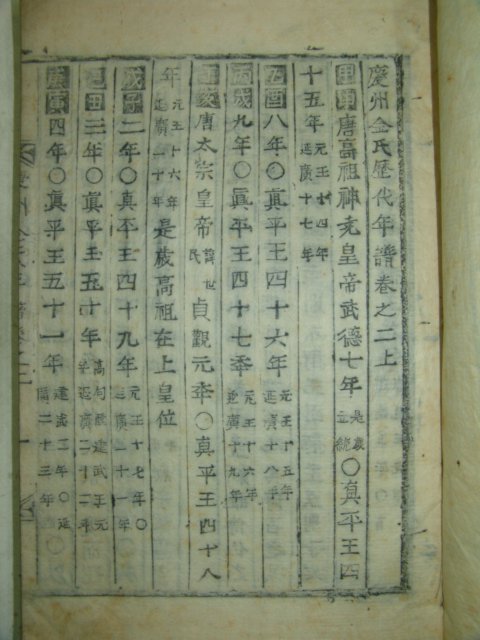 慶州金氏歷代年譜卷之二上
甲申唐高祖神堯皇帝武德七年是歲立統〇眞平王四
十五年元王十四年延廣十七年
乙酉八年〇眞平王四十六年元王十五年延廣十八年
丙戌九年〇眞平王四十七年元王十六年延廣十九年
丁亥唐太宗皇帝諱世民貞觀元年〇眞平王四十八
年元王十六年延廣二十年是歲高祖在上皇位
戊子二年〇眞平王四十九年元王十七年〇延廣二十一年
己丑三年〇眞平王五十年高句麗建武王元年延廣二十二年
庚寅四年〇眞平王五十一年建武二年〇延廣二十三年